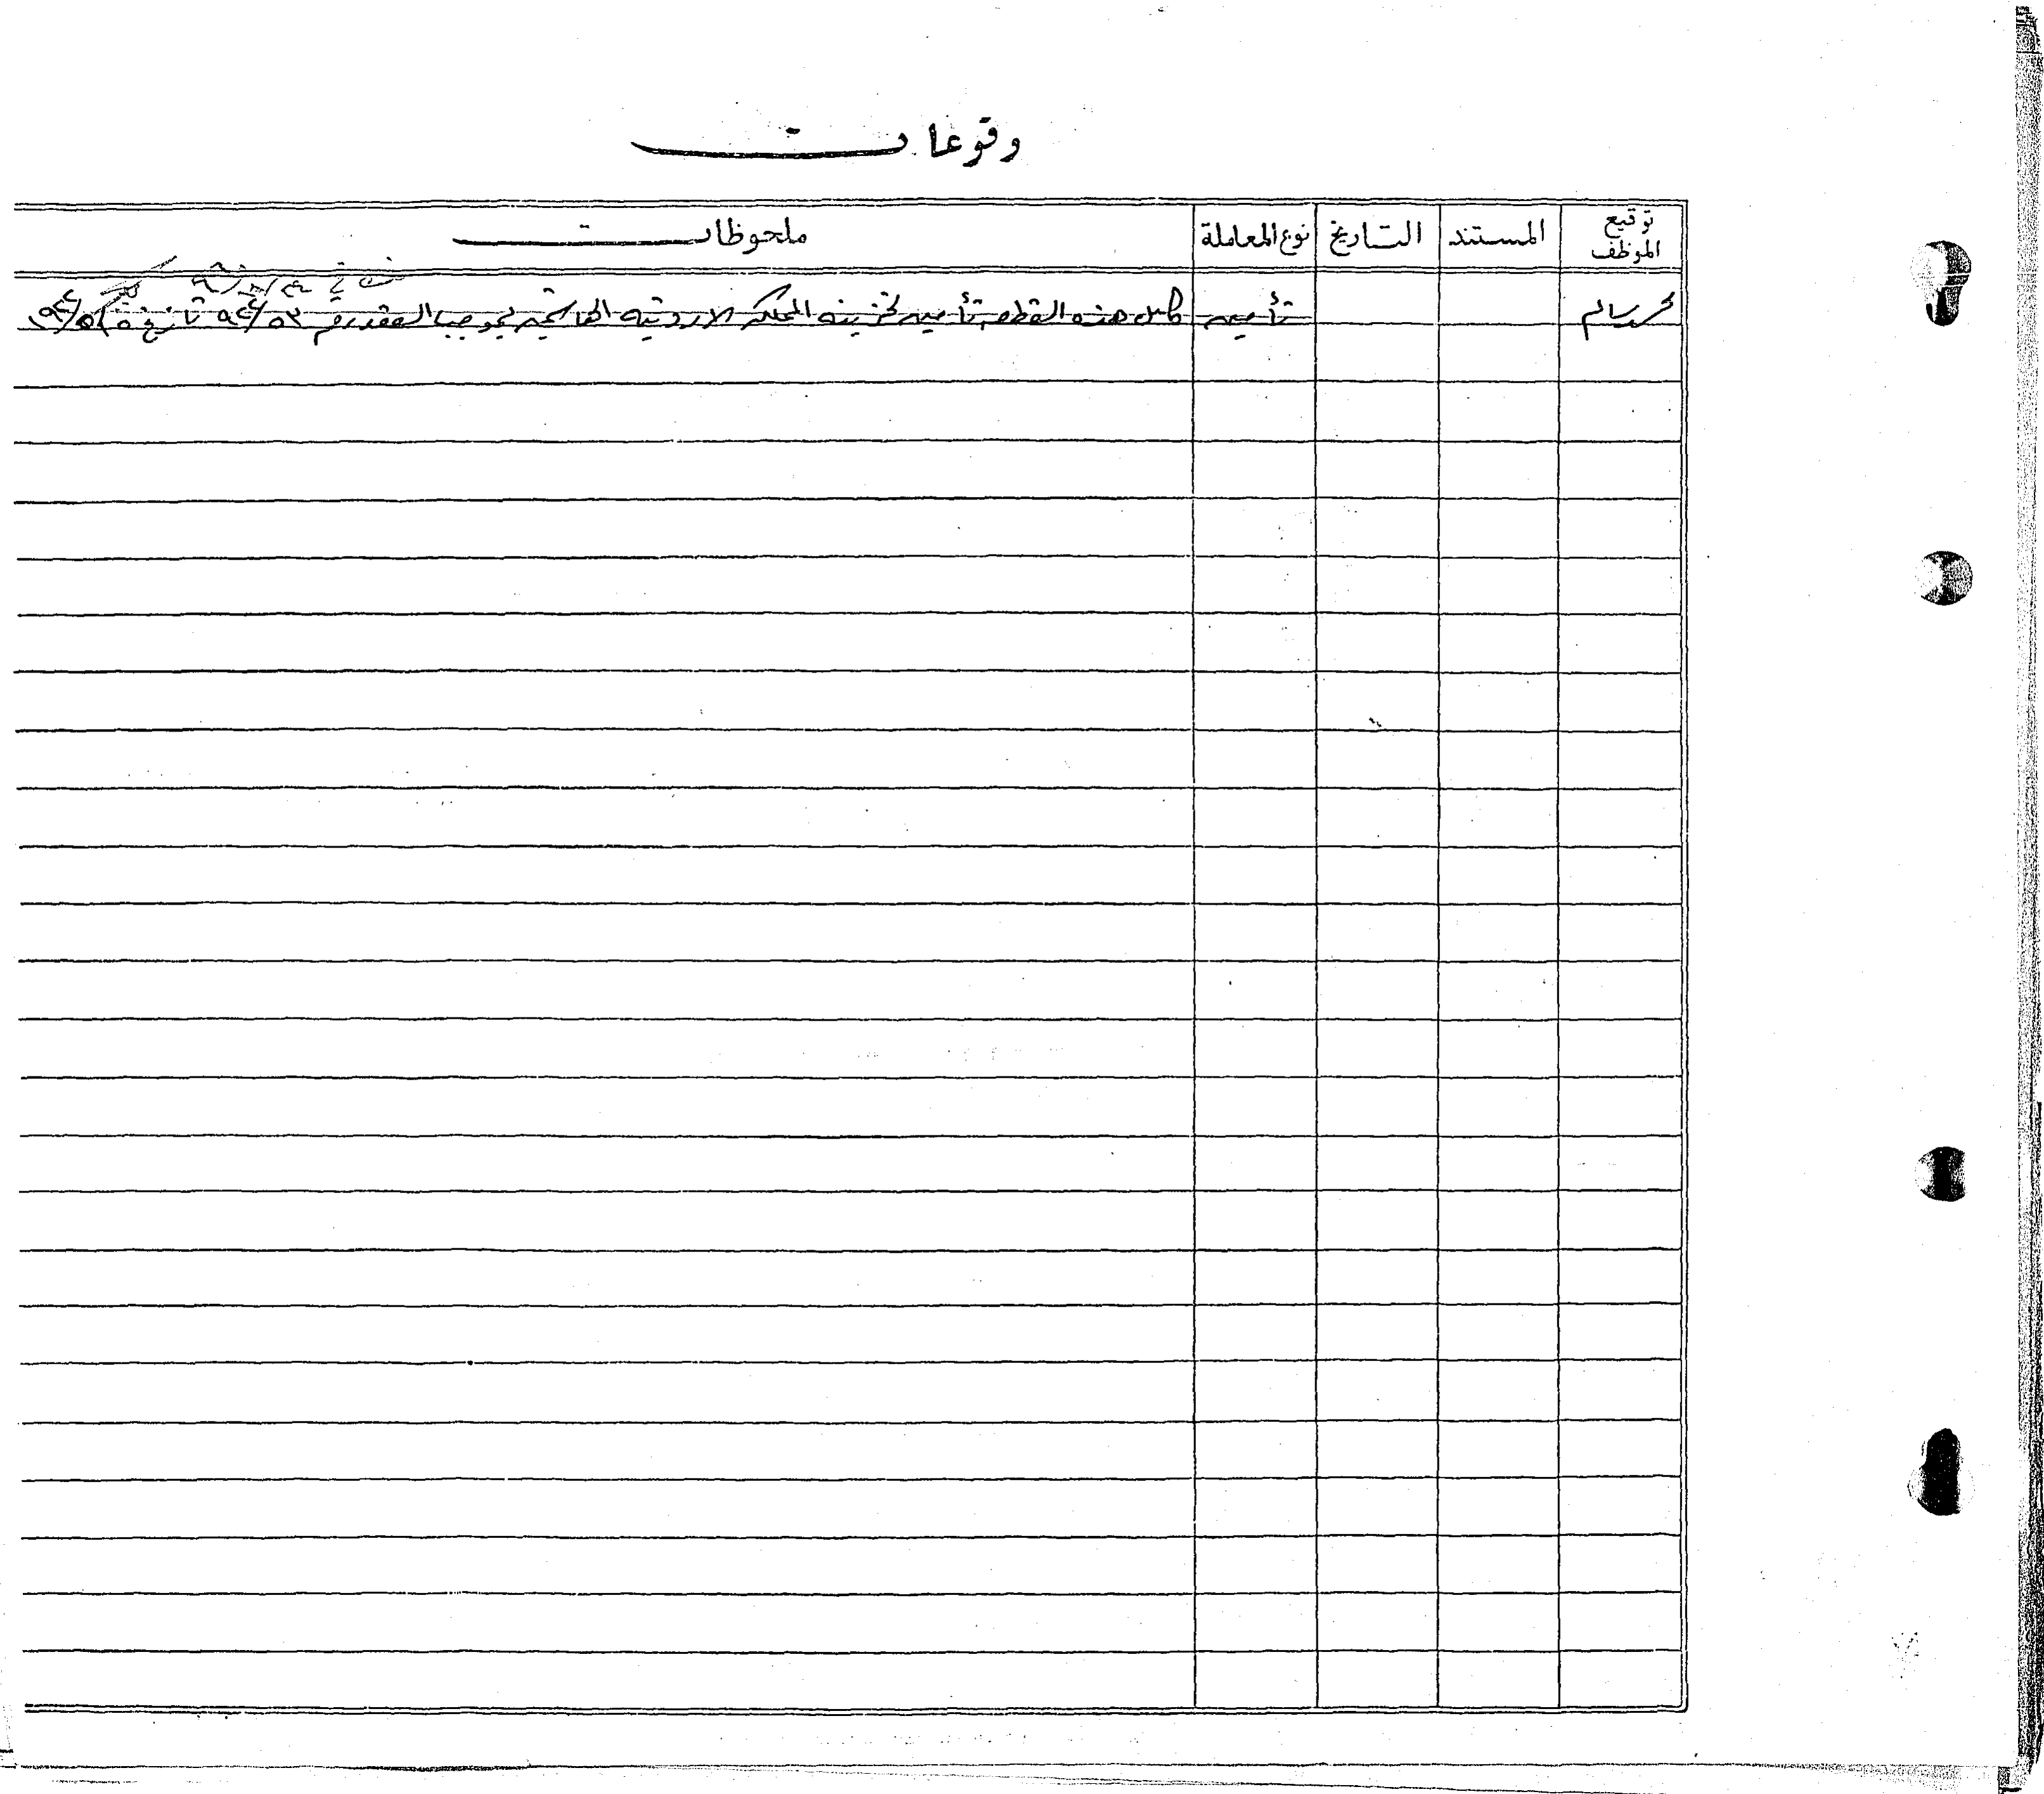 وقوعات
توقيع الموظف المستند التاريخ نوع المعاملة ملحوظات
تأمين كامل هذه القطعة تأمين لخزينة المملكة الاردنية الهاشمية بموجب العقد رقم ٩٤/٥٣ تاريخ